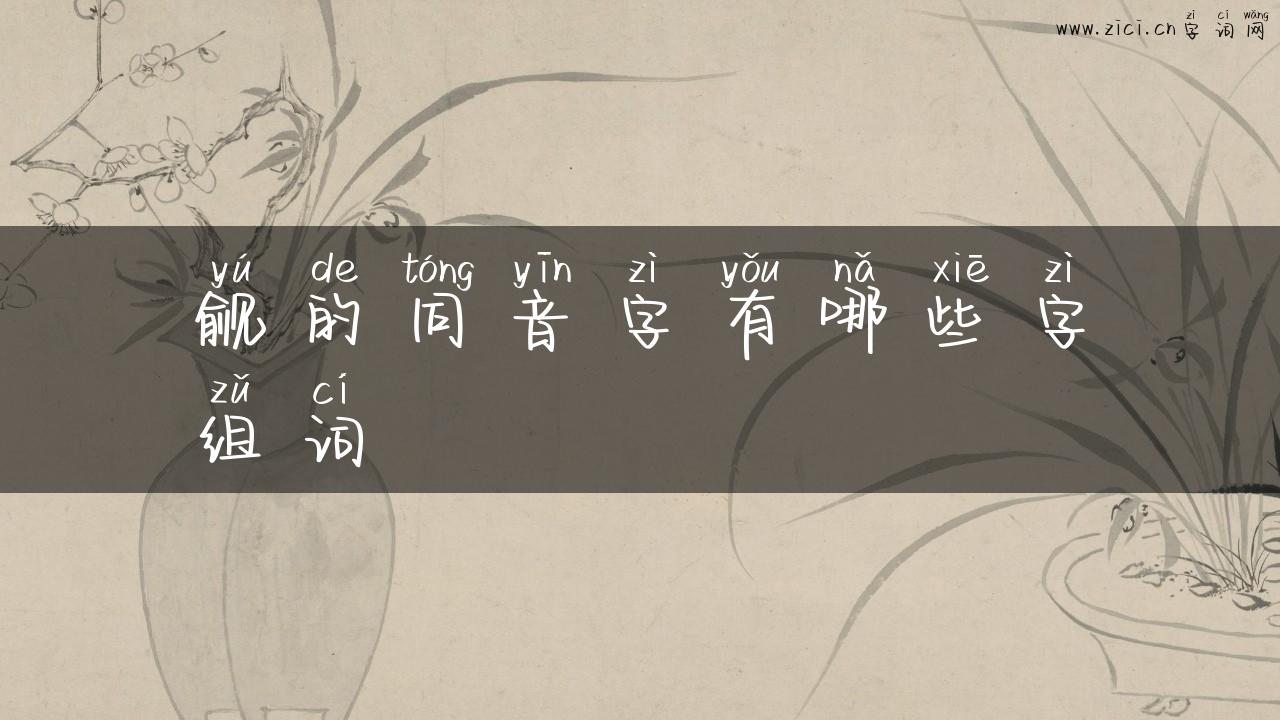 zì cí wǎng
www.zici.cn 字词网
yú de tóng yīn zì yǒu nǎ xiē zì
觎的同音字有哪些字
zǔ cí
组词